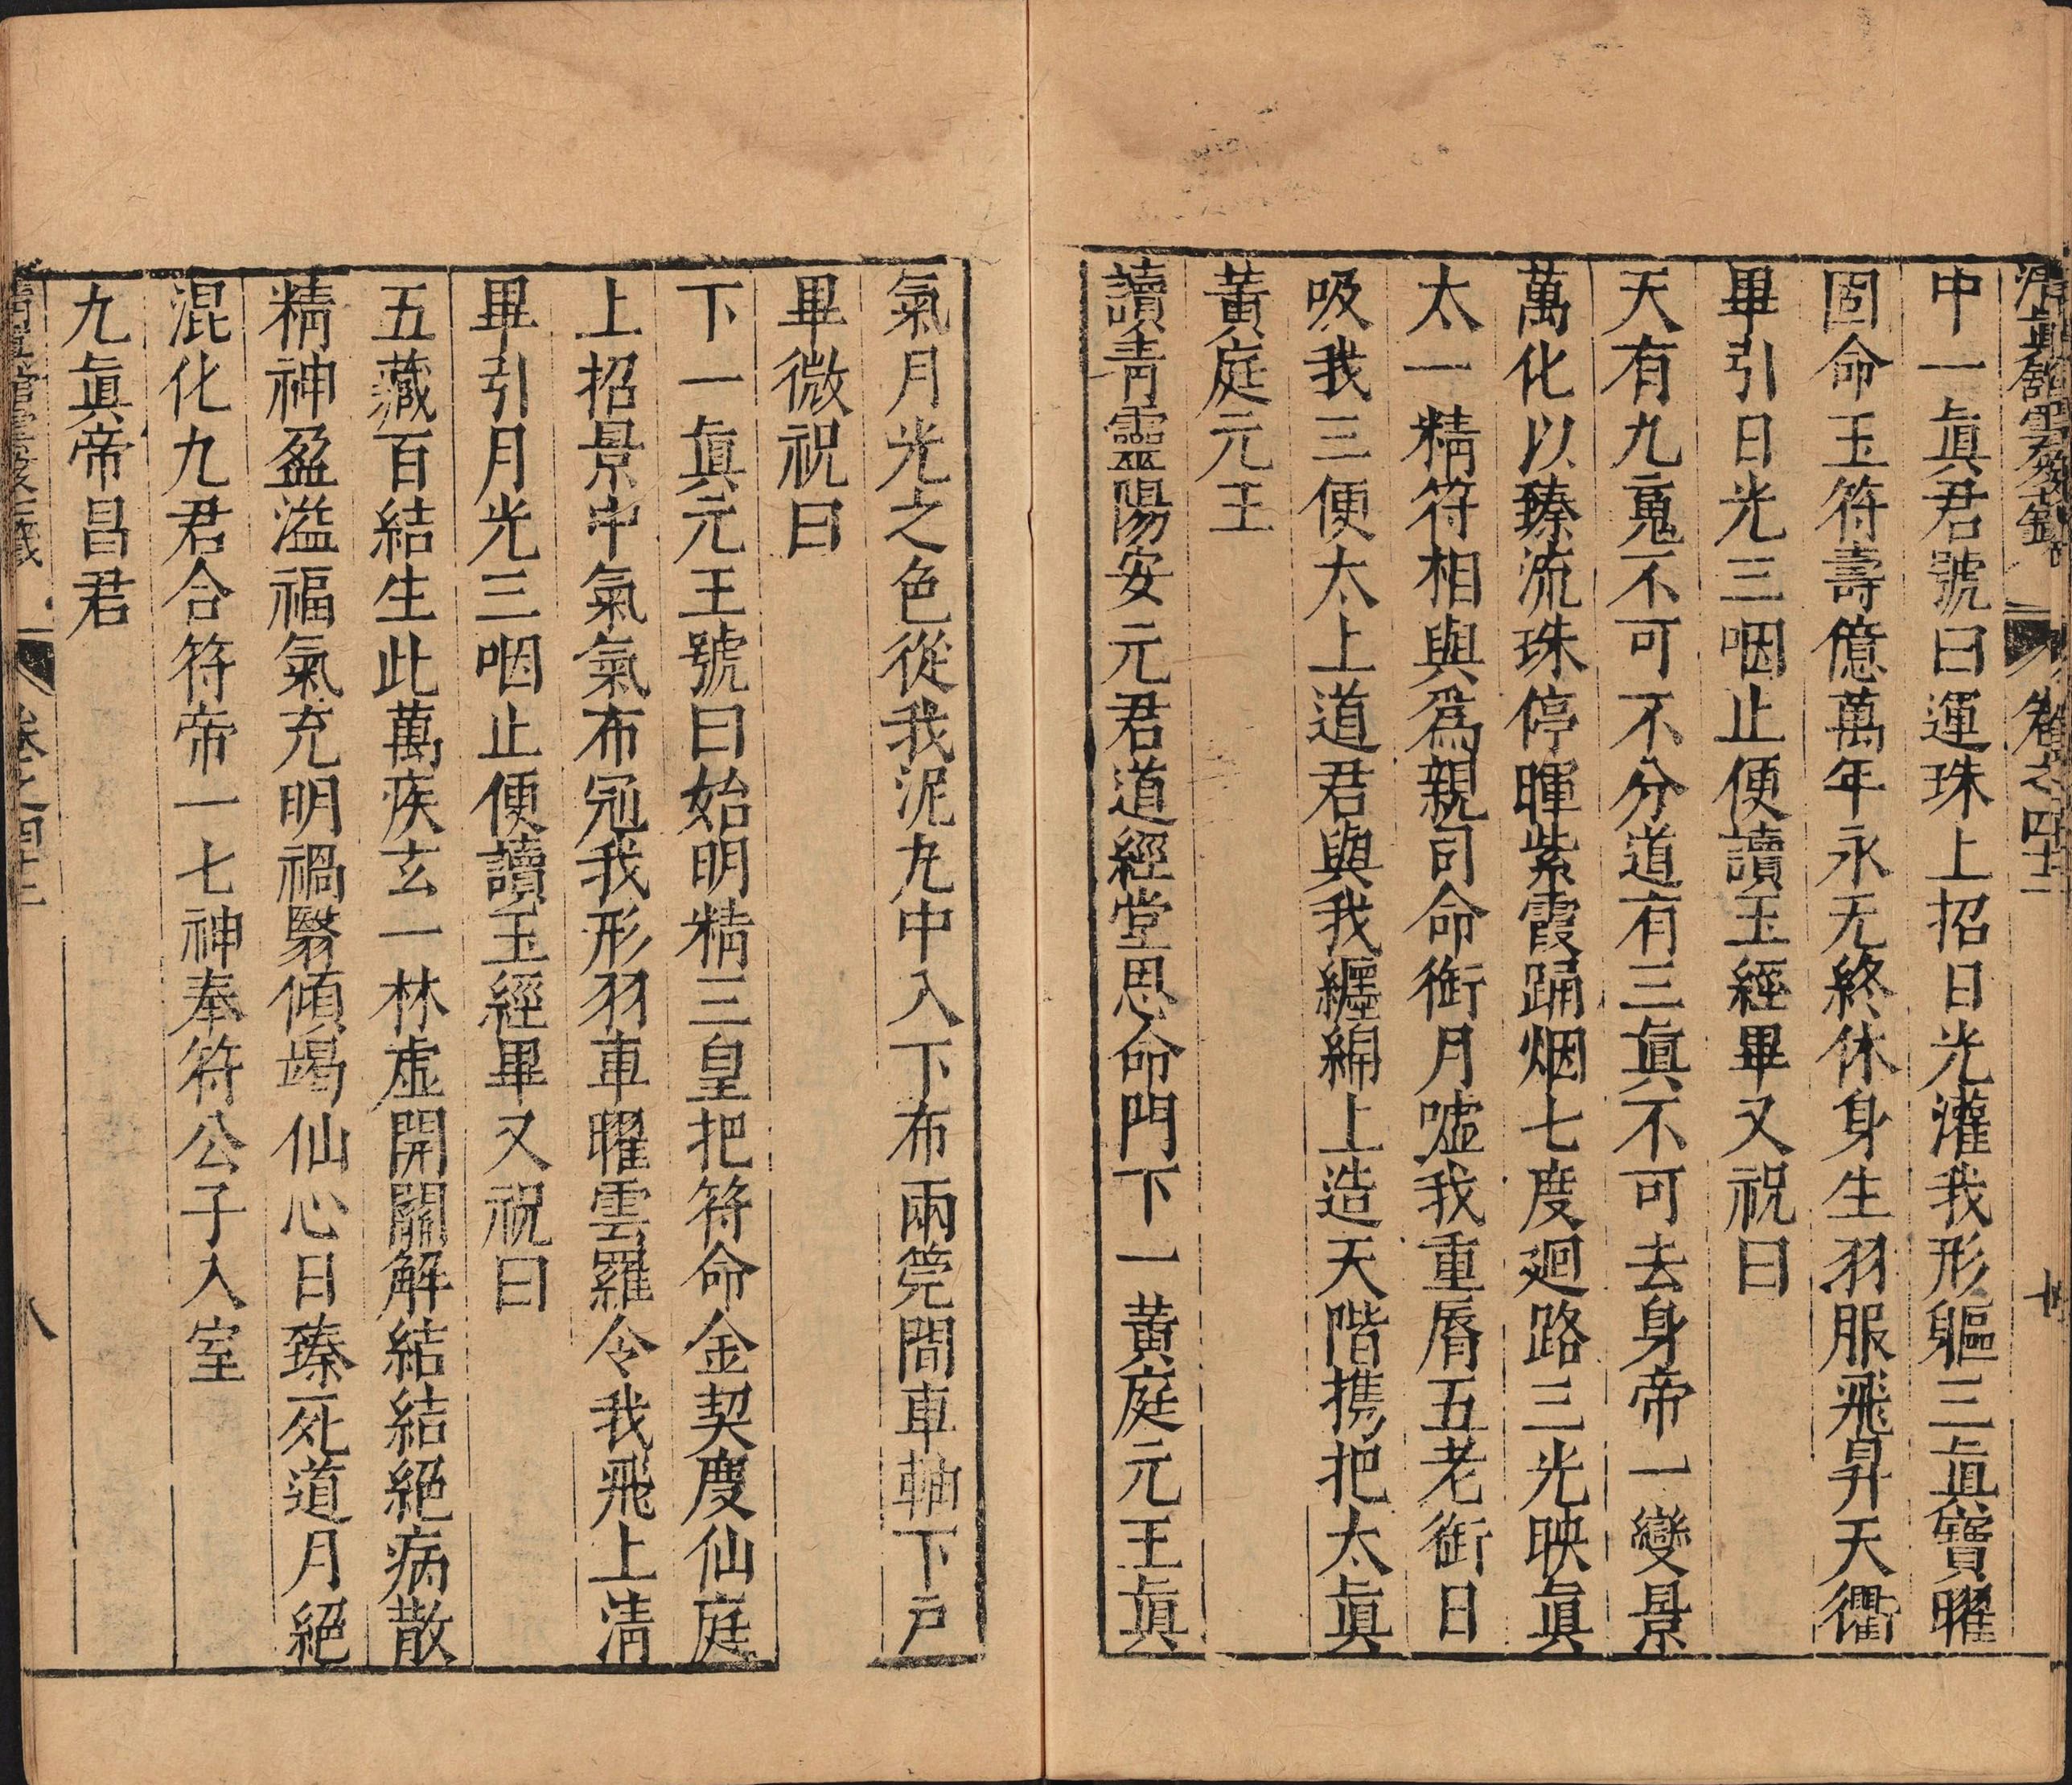 清眞館雲笈七籤 卷之四十二
中一眞君號曰運珠上招日光灌我形軀三眞寶曜
固命玉符壽億萬年永无終休身生羽服飛昇天衢
畢引日光三咽止便讀玉經畢又祝曰
天有九䰟不可不分道有三眞不可去身帝一變景
萬化以臻流珠停暉紫霞踊烟七度迴路三光映眞
太一精符相與爲親司命銜月噓我重脣五老銜日
吸我三便太上道君與我纏綿上造天階携把太眞
黃庭元王
讀青靈陽安元君道經堂思命門下一黃庭元王眞
氣月光之色從我泥丸中入下布兩筦間車軸下戶
畢微祝曰
下一眞元王號曰始明精三皇把符命金契度仙庭
上招景中氣氣布冠我形羽車曜雲羅令我飛上清
畢引月光三咽止便讀玉經畢又祝曰
五藏百結生此萬疾玄一林虛開關解結結絕病散
精神盈溢福氣充明禍翳傾竭仙心日臻死道月絕
混化九君合符帝一七神奉符公子入室
九眞帝昌君
清眞館雲笈七籤 卷之四十二 八